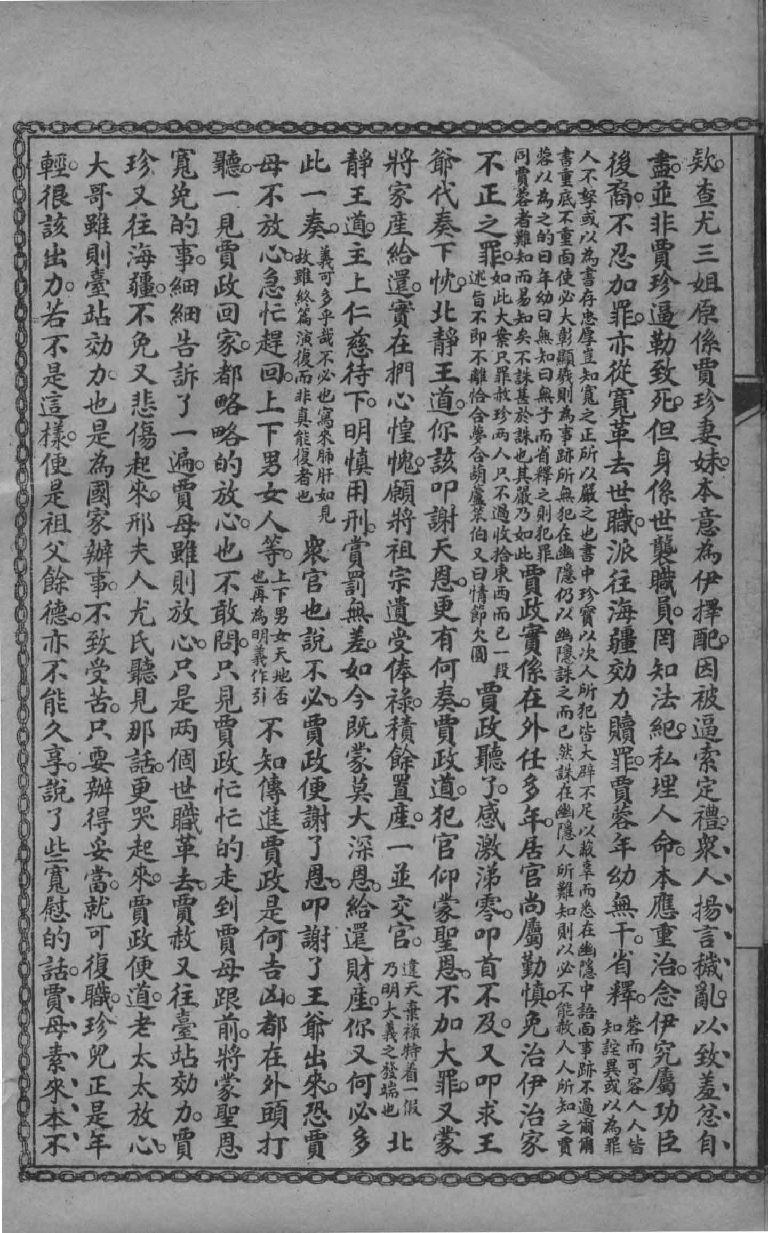 欵查尤三姐原係賈珍妻妹本意為伊擇配因被逼索定禮衆人揚言穢亂以致羞忿自
盡並非賈珍逼勒致死但身係世襲職員罔知法紀私埋人命本應重治念伊究屬功臣
後裔不忍加罪亦從寬革去世職派往海疆効力贖罪賈蓉年幼無干省釋蓉而可容人人皆
知詫異或以為罪
人不孥或以為書存忠厚豈知寬之正所以嚴之也書中珍寶以次人所犯皆大辟不足以蔽辜而悉在幽隱中語面事跡不過爾爾
書重底不重面使必大彰顯戮則為事跡所無犯在幽隱仍以幽隱誅之而已然誅在幽隱人所難知則以必不能赦人人所知之賈
蓉以為之的曰年幼曰無知曰無子而首釋之則犯罪
同賈蓉者難知而易知矣不誅甚於誅也其嚴乃如此賈政實係在外任多年居官尚屬勤慎免治伊治家
不正之罪如此大案只罪赦珍兩人只不過收拾東西而已一段
述旨不即不離恰合夢合葫蘆菜伯又曰情節欠圓賈政聽了感激涕零叩首不及又叩求王
爺代奏下忱北靜王道你該叩謝天恩更有何奏賈政道犯官仰蒙聖恩不加大罪又蒙
將家産給還實在捫心惶愧願將祖宗遺受俸祿積餘置産一並交官違天棄祿特着一假
乃明大義之發端也北
靜王道主上仁慈待下明慎用刑賞罰無差如今既蒙莫大深恩給還財産你又何必多
此一奏義可多乎哉不必也寫來肺肝如見
故雖終篇演復而非真能復者也衆官也說不必賈政便謝了恩叩謝了王爺出來恐賈
母不放心急忙趕回上下男女人等上下男女天地否
也再為明義作引不知傳進賈政是何吉凶都在外頭打
聽一見賈政回家都略略的放心也不敢問只見賈政忙忙的走到賈母跟前將蒙聖恩
寬免的事細細告訴了一遍賈母雖則放心只是兩個世職革去賈赦又往臺站効力賈
珍又往海疆不免又悲傷起來邢夫人尤氏聽見那話更哭起來賈政便道老太太放心
大哥雖則臺站効力也是為國家辦事不致受苦只要辦得妥當就可復職珍兒正是年
輕很該出力若不是這樣便是祖父餘德亦不能久享說了些寬慰的話賈母素來本不